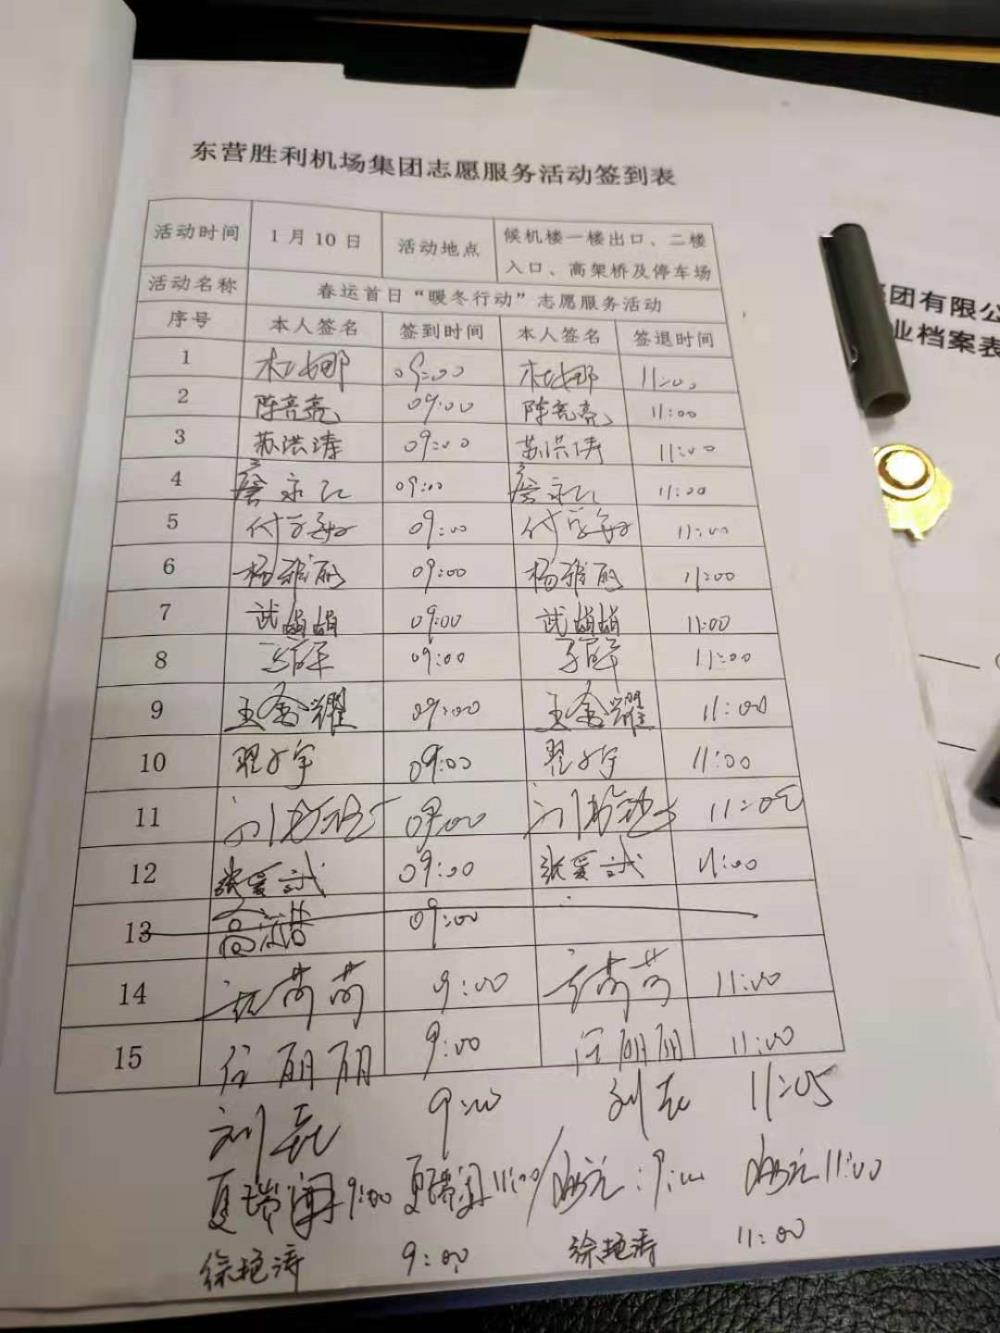 东营胜利机场集团志愿服务活动签到表
活动时间 1月10日 活动地点 候机楼一楼出口、二楼
入口、高架桥及停车场
活动名称 春运首日“暖冬行动”志愿服务活动
序号 本人签名 签到时间 本人签名 签退时间
1 杜娜 09:00 杜娜 11:00
2 陈亮亮 09:00 陈亮亮 11:00
3 苏洪涛 09:00 苏洪涛 11:00
4 09:00 11:00
5 09:00 11:00
6 杨雅丽 09:00 杨雅丽 11:00
7 武娟娟 09:00 武娟娟 11:00
8 09:00 11:00
9 王金耀 09:00 王金耀 11:00
10 翟小宇 09:00 翟小宇 11:00
11 09:00 11:00
12 张爱试 09:00 张爱试 11:00
13 09:00
14 9:00 11:00
15 任丽丽 9:00 任丽丽 11:00
刘磊 9:00 刘磊 11:05
夏瑞阁 9:00 夏瑞阁 11:00 / : 9:00 11:00
徐艳涛 9:00 徐艳涛 11:00
集团有限公
业档案表